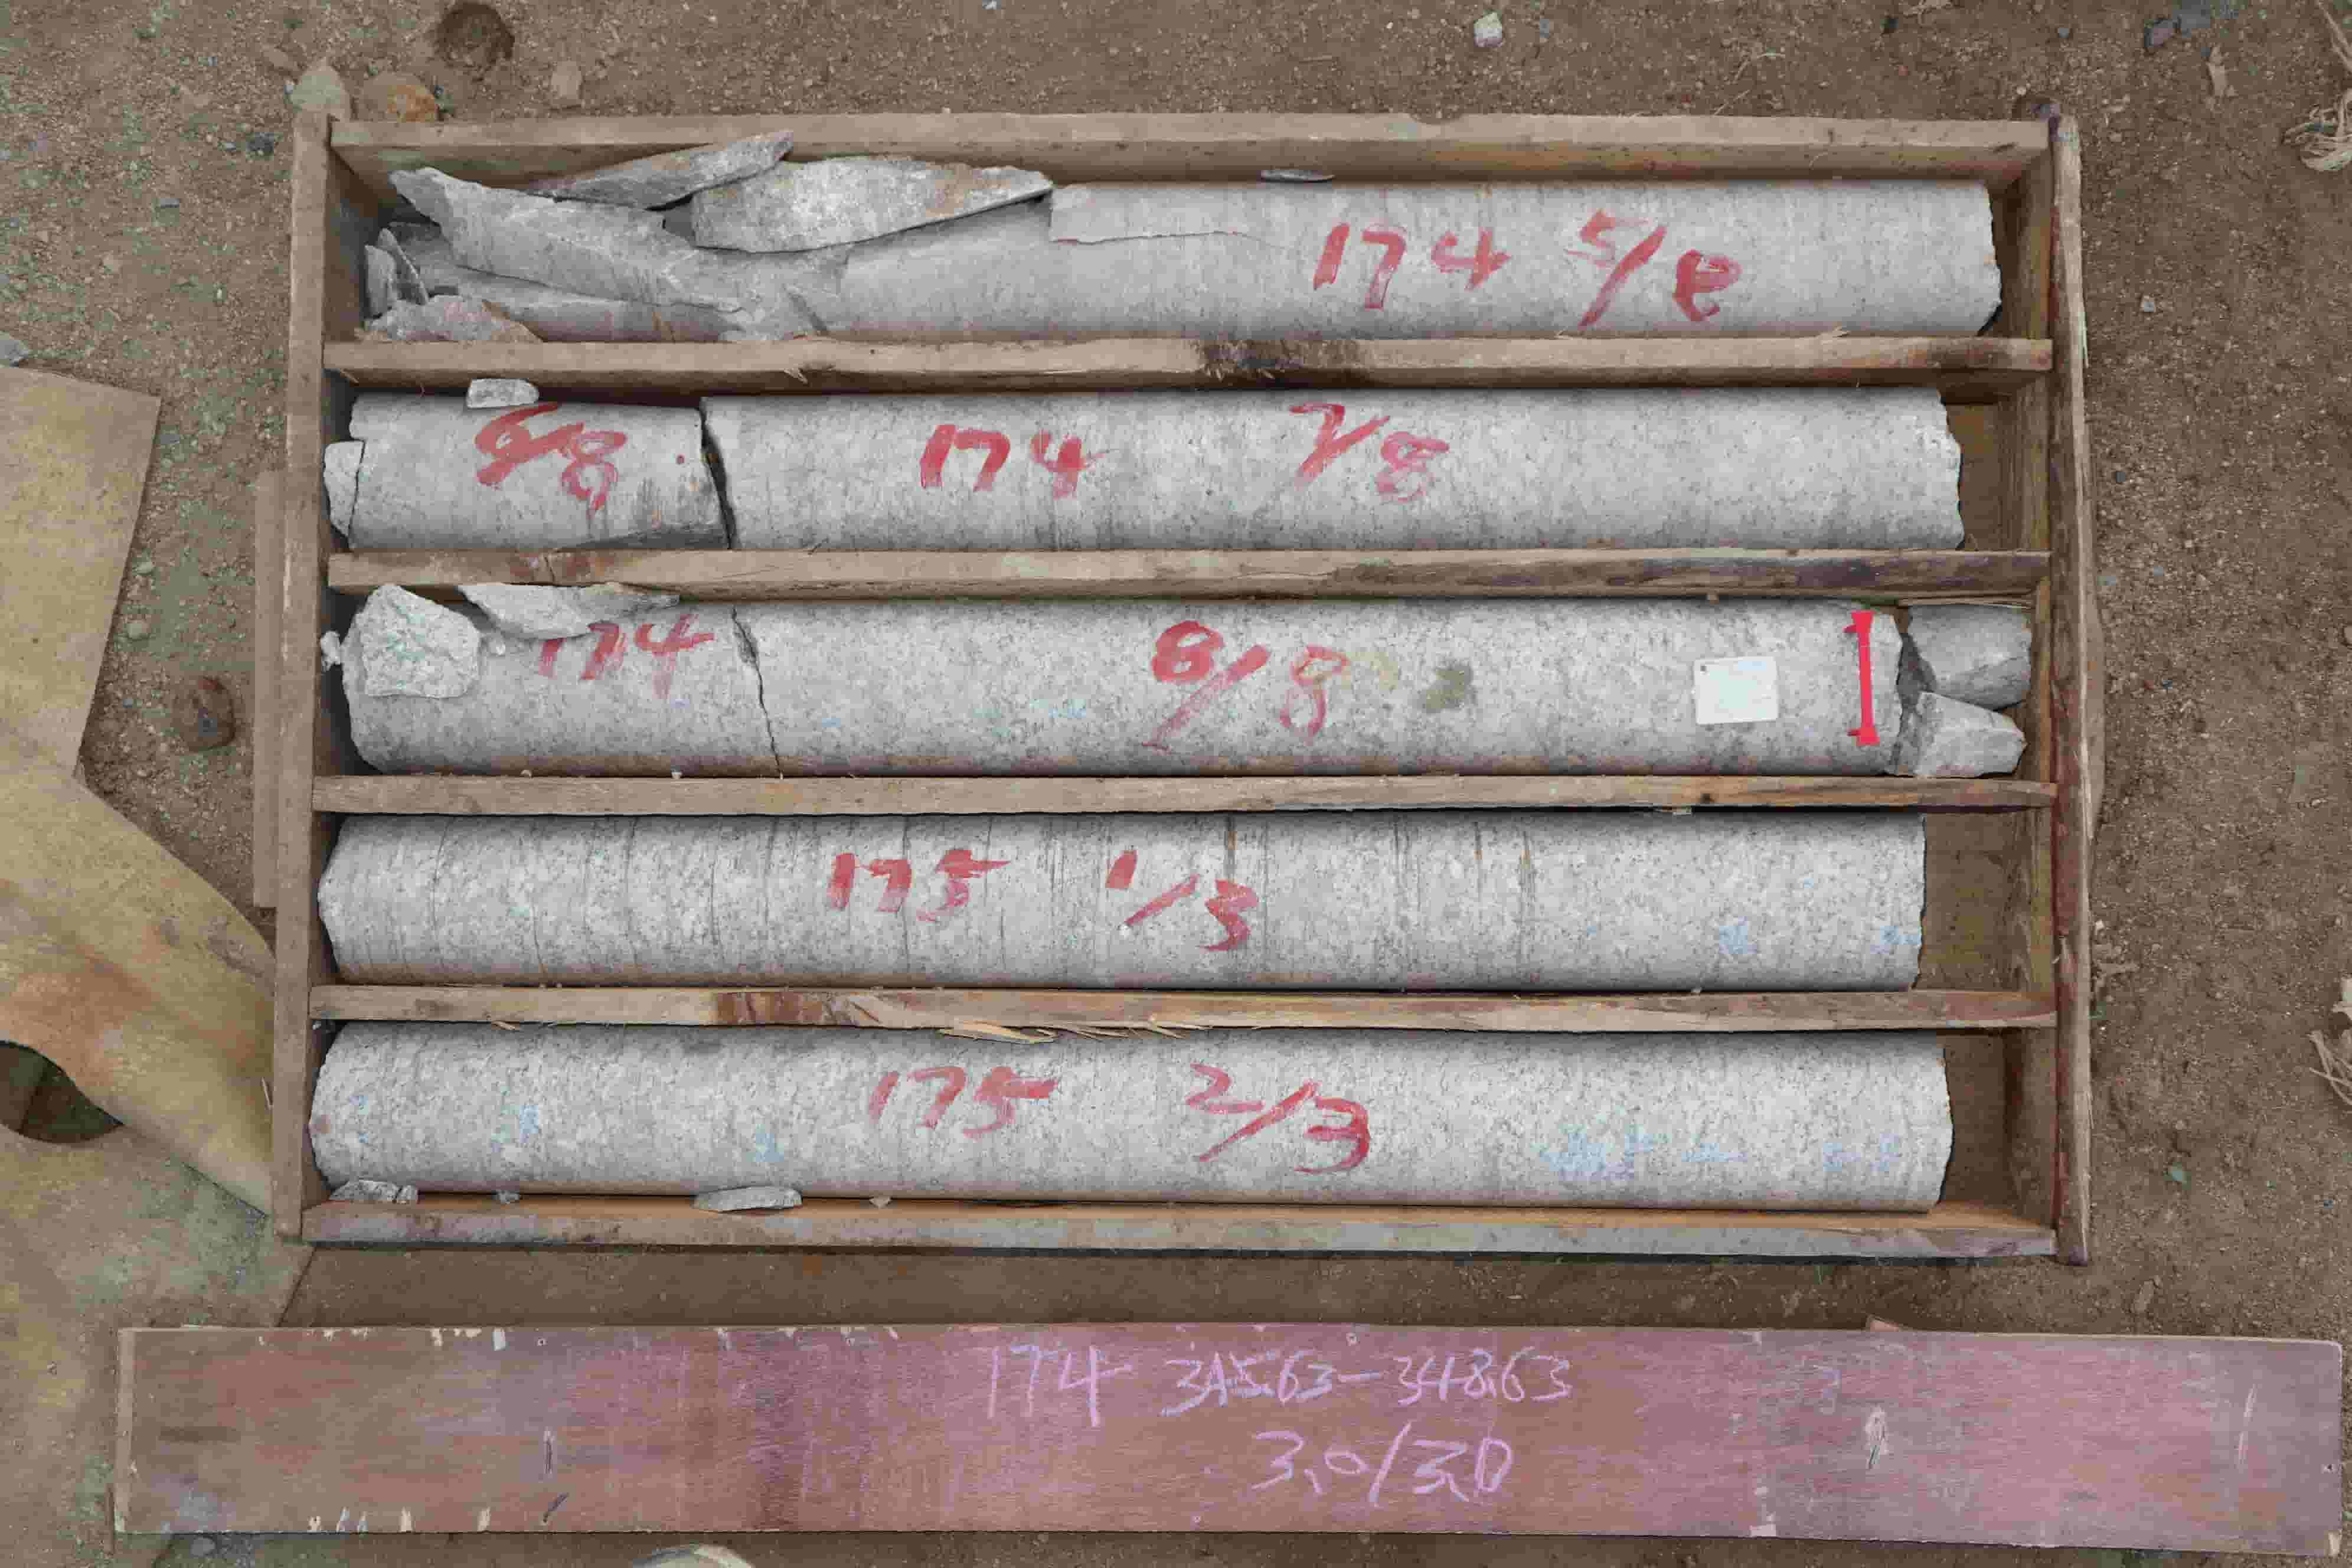 174 5/8
6/8 174 7/8
174 8/8
175 1/3
175 2/3
174 345.63-348.63
3.0/3.0